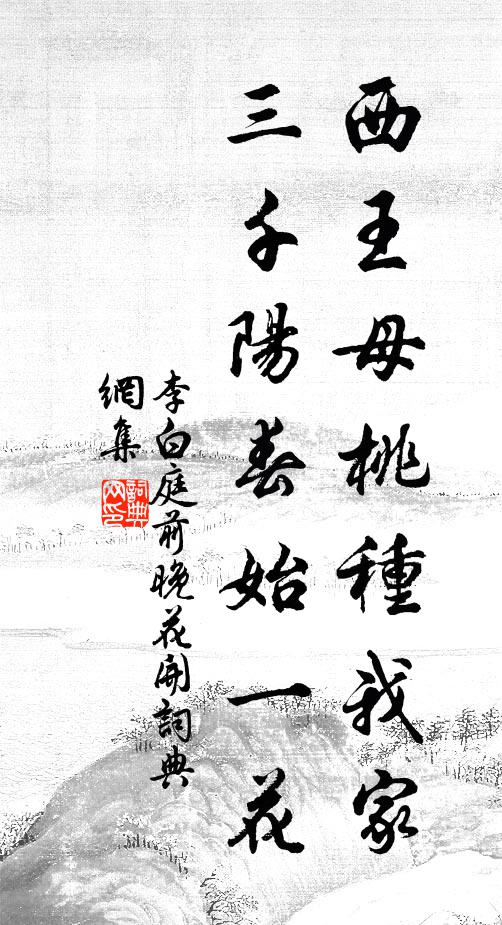 西王母桃種我家
三千陽春始一花
李白庭前晚花開詞典
網集
詞典
网印